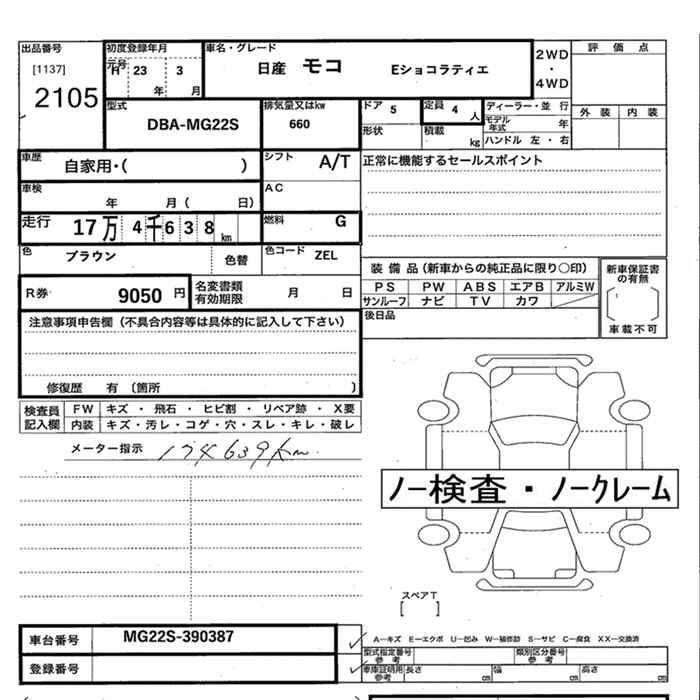 出品番号
[1137]
2105
初度登録年月
元号
H 23 3
年 月
車名・グレード
日産 モコ Eショコラティエ
2WD
・
4WD
評 価 点
外 装 内 装
型式
DBA-MG22S
排気量又はkw
660
ドア 5
定員 4 人
形状
積載 kg
ディーラー・並 行
モデル年式 年
ハンドル 左 ・ 右
車歴
自家用・( )
シフト
A/T
車検
年 月( 日)
AC
走行 17万 4千 6 3 8 km
燃料
G
色
ブラウン
色替
色コード ZEL
R券 9050 円
名変書類有効期限 月 日
正常に機能するセールスポイント
装 備 品 (新車からの純正品に限り〇印)
PS PW ABS エアB アルミW
サンルーフ ナビ TV カワ
新車保証書の有無
車載不可
後日品
注意事項申告欄 (不具合内容等は具体的に記入して下さい)
修復歴 有 (箇所 )
検査員記入欄
FW キズ ・ 飛石 ・ ヒビ割 ・ リペア跡 ・ X要
内装 キズ・汚レ・コゲ・穴・スレ・キレ・破レ
メーター指示 174639km
ノー検査・ノークレーム
スペアT
[ ]
車台番号 MG22S-390387
登録番号
A―キズ E―エクボ U―凹み W―補修跡 S―サビ C―腐食 XX―交換済
型式指定番号 参考
類別区分番号 参考
車庫証明用 参考 長さ cm 幅 cm 高さ cm